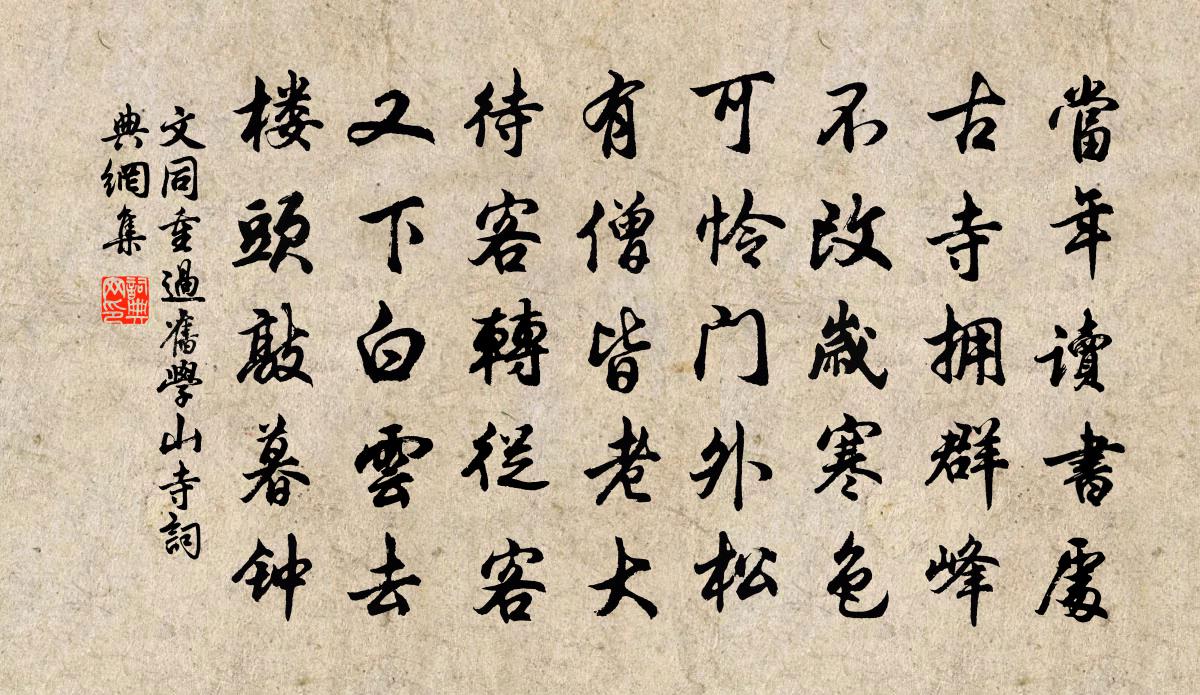 當年讀書處
古寺拥群峰
不改歲寒色
可怜门外松
有僧皆老大
待客轉從容
又下白雲去
楼頭敲暮钟
文同重過舊學山寺詞
典網集
詞典
网印